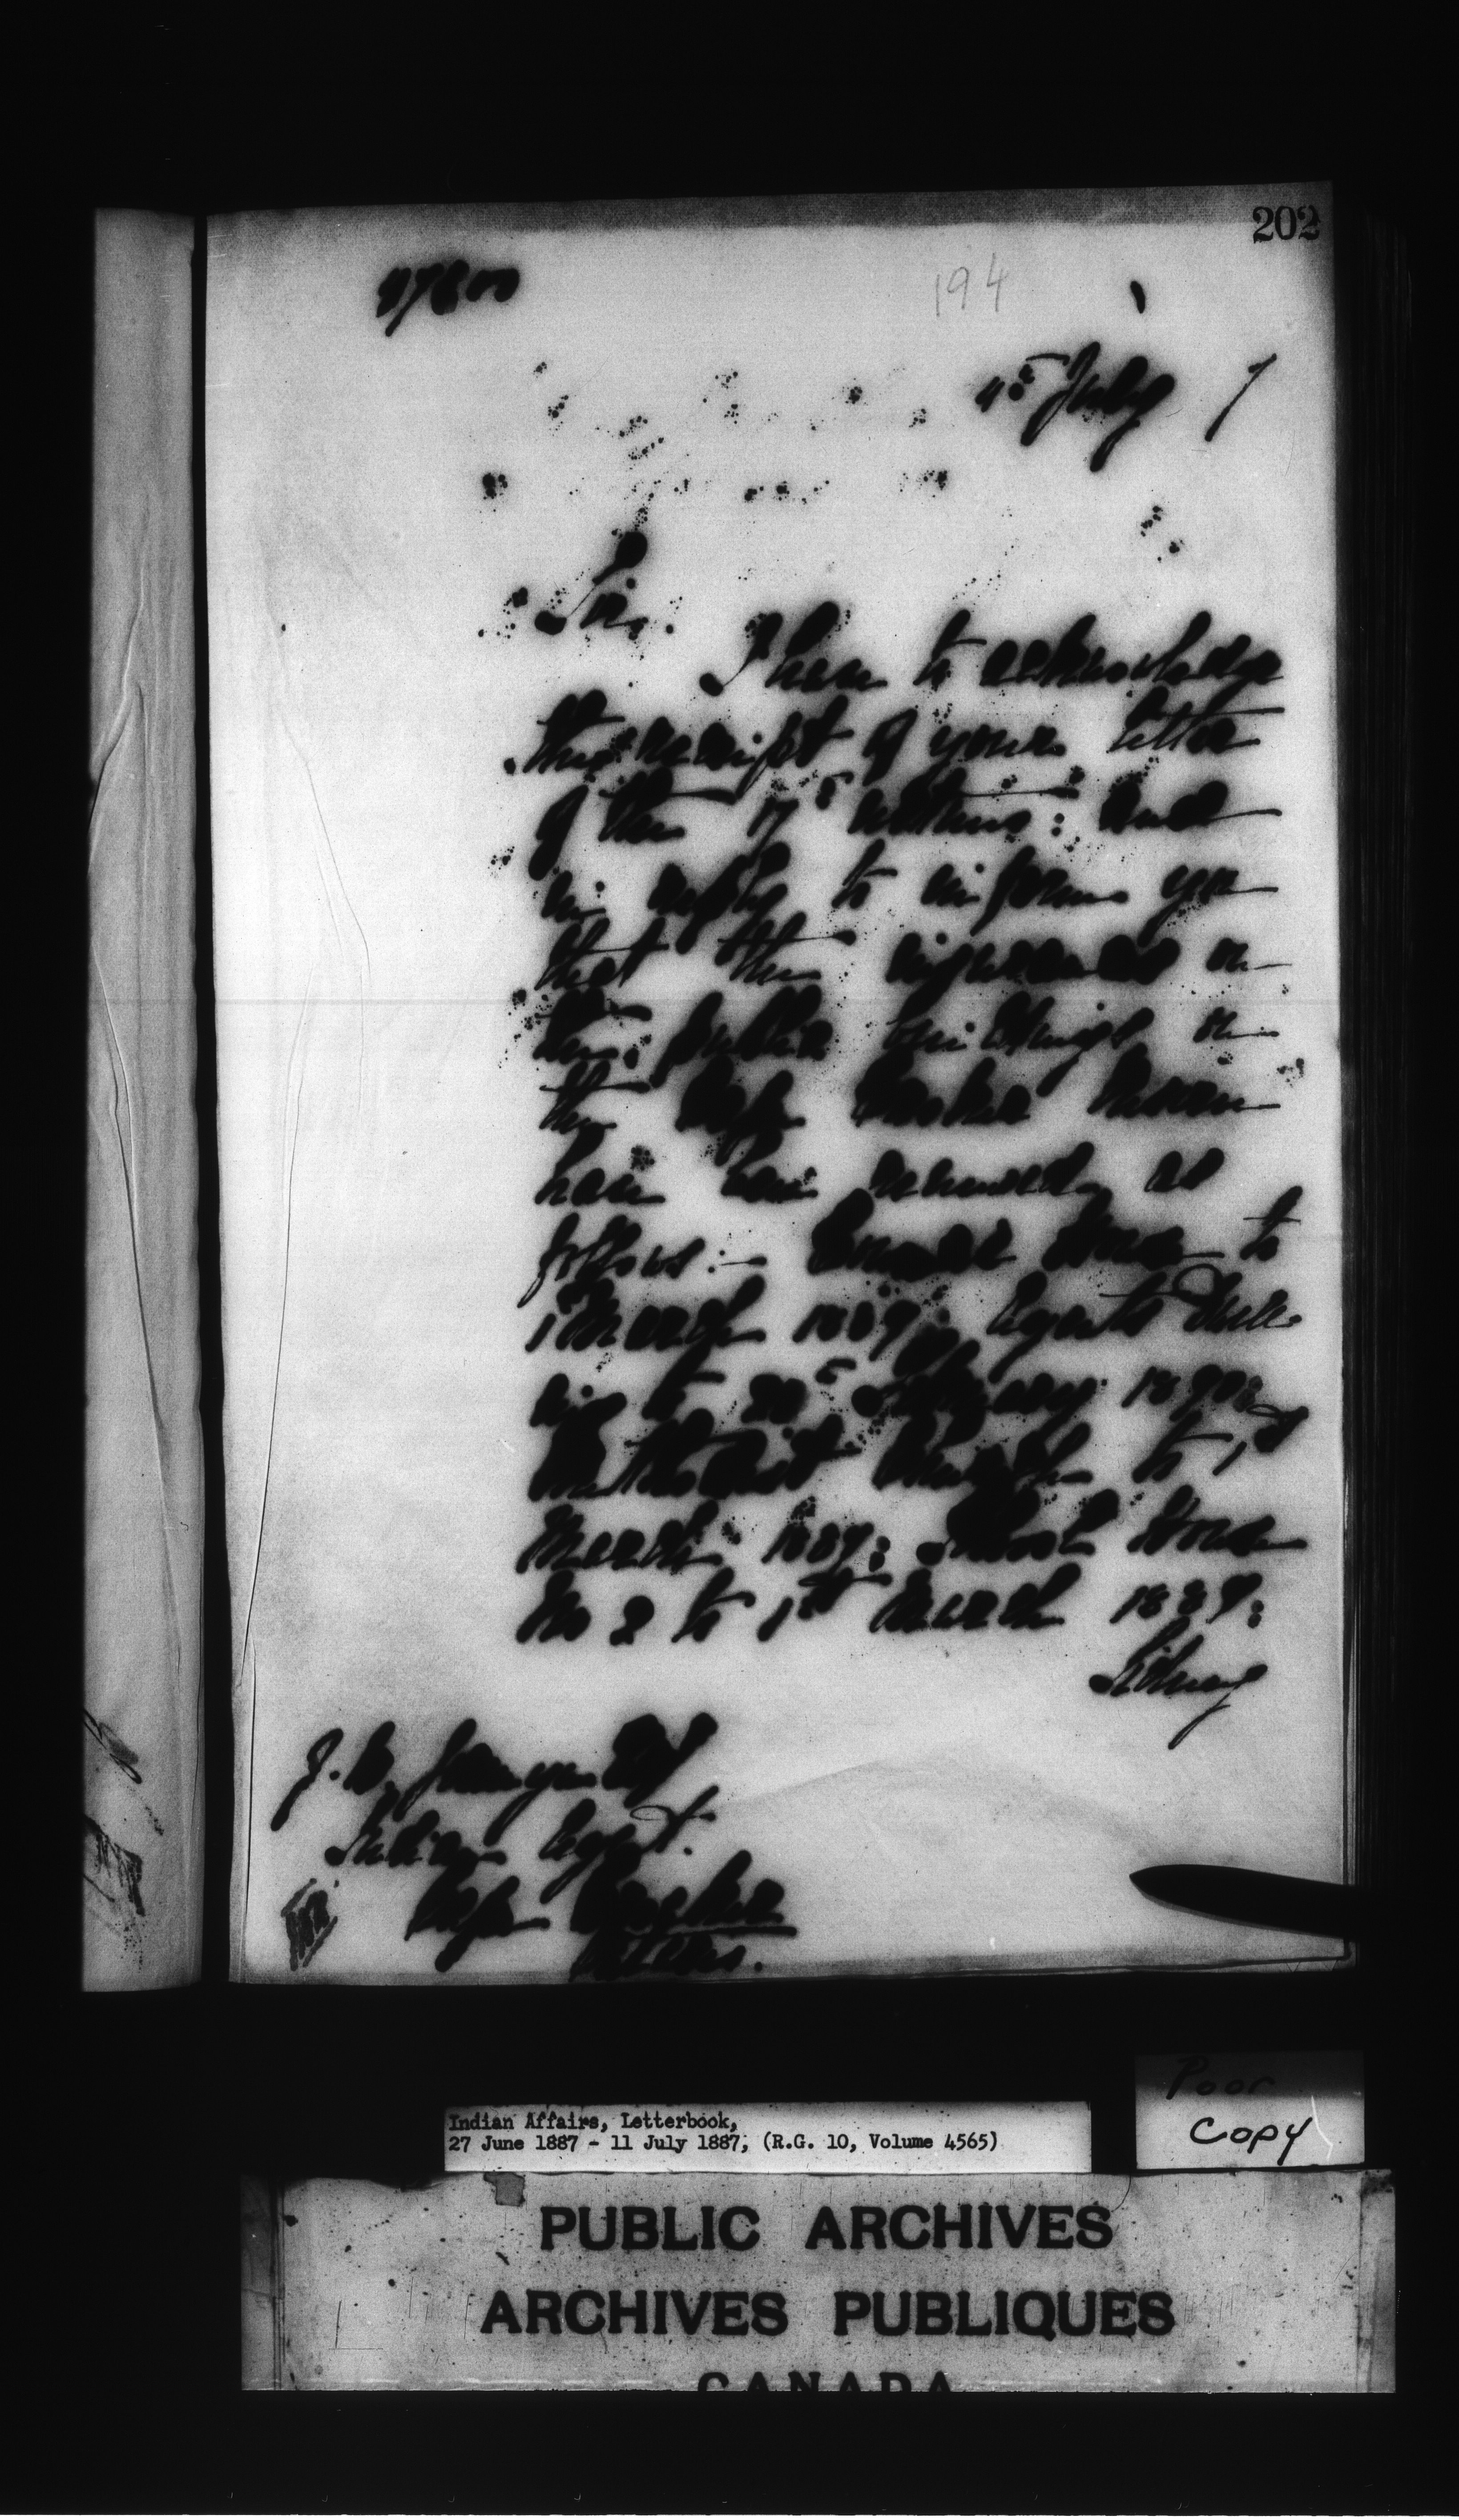 202
194
July 7
Sir,
I have to acknowledge
the receipt of your letter
of the 17 ultimo: and
in reply to inform you
that the insurances on
the public buildings on
the Cape Croker Reserve
have been renewed, as
follows:- Council House to
1 March 1889; Agents Dwel-
ing to February 1890:
Methodist Church to 1st
March 1889: School House
No 2 to 1st March 1889:
Sidney
J. W. Jermyn Esq
Indian Agent.
Cape Croker
Poor
Copy
Indian Affairs, Letterbook,
27 June 1887 - 11 July 1887, (R.G. 10, Volume 4565)
PUBLIC ARCHIVES
ARCHIVES PUBLIQUES
CANADA